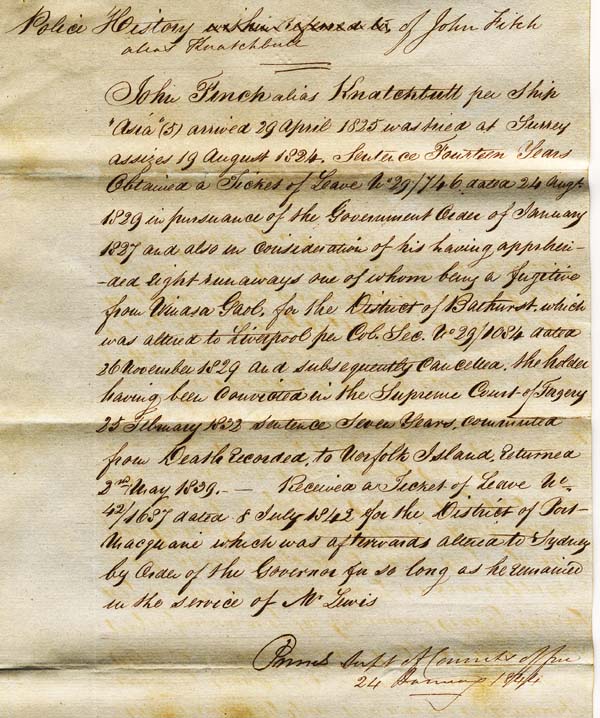 Police History within referred to of John Fitch
alias Knatchbull
John Finch alias Knatchbull per Ship
"Asia" (5) arrived 29 April 1825 was tried at Surrey
assizes 19 August 1824, Sentence Fourteen Years
Obtained a Ticket of Leave No 29/746 dated 24 Augt
1829 in pursuance of the Government Order of January
1827 and also in consideration of his having apprehen-
-ded Eight runaways one of whom being a fugitive
from Gaol, for the District of Bathurst, which
was altered to Liverpool per Col. Sec. No 29/1084 dated
26 November 1829 and subsequently Cancelled, the holder
having been Convicted in the Supreme Court of Forgery
25 February 1832 sentence Seven Years, commuted
from Death recorded, to Norfolk Island, returned
2nd May 1839. — Received a Ticket of Leave No
42/1637 dated 8 July 1842 for the District of Port
Macquarie which was afterwards altered to Sydney
by Order of the Governor for so long as he remained
in the service of Mr Lewis
Supt of Convicts office
24 January 1844